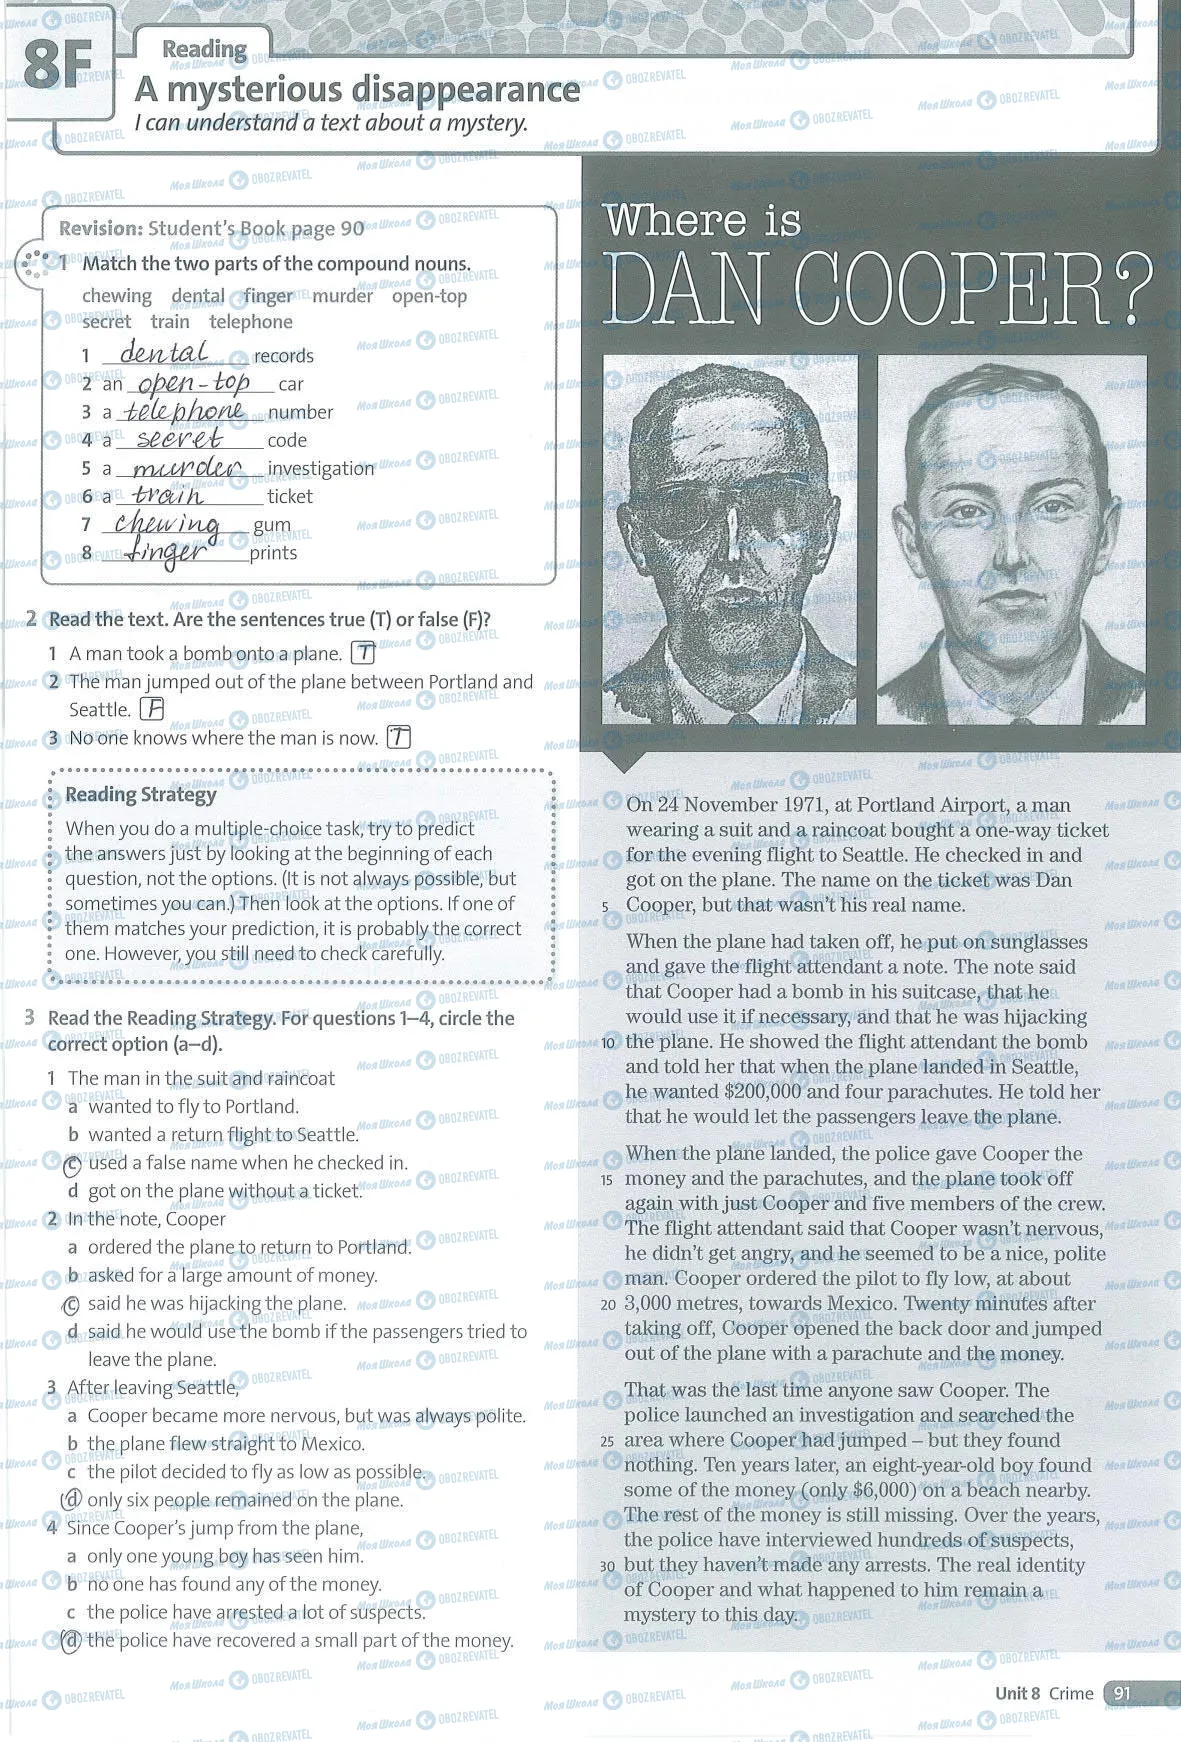 8F
Reading
A mysterious disappearance
I can understand a text about a mystery.
Revision: Student's Book page 90
1 Match the two parts of the compound nouns.
chewing dental finger murder open-top
secret train telephone
1 dental records
2 an open-top car
3 a telephone number
4 a secret code
5 a murder investigation
6 a train ticket
7 chewing gum
8 finger prints
2 Read the text. Are the sentences true (T) or false (F)?
1 A man took a bomb onto a plane. T
2 The man jumped out of the plane between Portland and
Seattle. F
3 No one knows where the man is now. T
Reading Strategy
When you do a multiple-choice task, try to predict
the answers just by looking at the beginning of each
question, not the options. (It is not always possible, but
sometimes you can.) Then look at the options. If one of
them matches your prediction, it is probably the correct
one. However, you still need to check carefully.
3 Read the Reading Strategy. For questions 1–4, circle the
correct option (a–d).
1 The man in the suit and raincoat
a wanted to fly to Portland.
b wanted a return flight to Seattle.
c used a false name when he checked in.
d got on the plane without a ticket.
2 In the note, Cooper
a ordered the plane to return to Portland.
b asked for a large amount of money.
c said he was hijacking the plane.
d said he would use the bomb if the passengers tried to
leave the plane.
3 After leaving Seattle,
a Cooper became more nervous, but was always polite.
b the plane flew straight to Mexico.
c the pilot decided to fly as low as possible.
d only six people remained on the plane.
4 Since Cooper's jump from the plane,
a only one young boy has seen him.
b no one has found any of the money.
c the police have arrested a lot of suspects.
d the police have recovered a small part of the money.
Where is
DAN COOPER?
On 24 November 1971, at Portland Airport, a man
wearing a suit and a raincoat bought a one-way ticket
for the evening flight to Seattle. He checked in and
got on the plane. The name on the ticket was Dan
5 Cooper, but that wasn't his real name.
When the plane had taken off, he put on sunglasses
and gave the flight attendant a note. The note said
that Cooper had a bomb in his suitcase, that he
would use it if necessary, and that he was hijacking
10 the plane. He showed the flight attendant the bomb
and told her that when the plane landed in Seattle,
he wanted $200,000 and four parachutes. He told her
that he would let the passengers leave the plane.
When the plane landed, the police gave Cooper the
15 money and the parachutes, and the plane took off
again with just Cooper and five members of the crew.
The flight attendant said that Cooper wasn't nervous,
he didn't get angry, and he seemed to be a nice, polite
man. Cooper ordered the pilot to fly low, at about
20 3,000 metres, towards Mexico. Twenty minutes after
taking off, Cooper opened the back door and jumped
out of the plane with a parachute and the money.
That was the last time anyone saw Cooper. The
police launched an investigation and searched the
25 area where Cooper had jumped – but they found
nothing. Ten years later, an eight-year-old boy found
some of the money (only $6,000) on a beach nearby.
The rest of the money is still missing. Over the years,
the police have interviewed hundreds of suspects,
30 but they haven't made any arrests. The real identity
of Cooper and what happened to him remain a
mystery to this day.
Unit 8 Crime 91
Моя Школа OBOZREVATEL